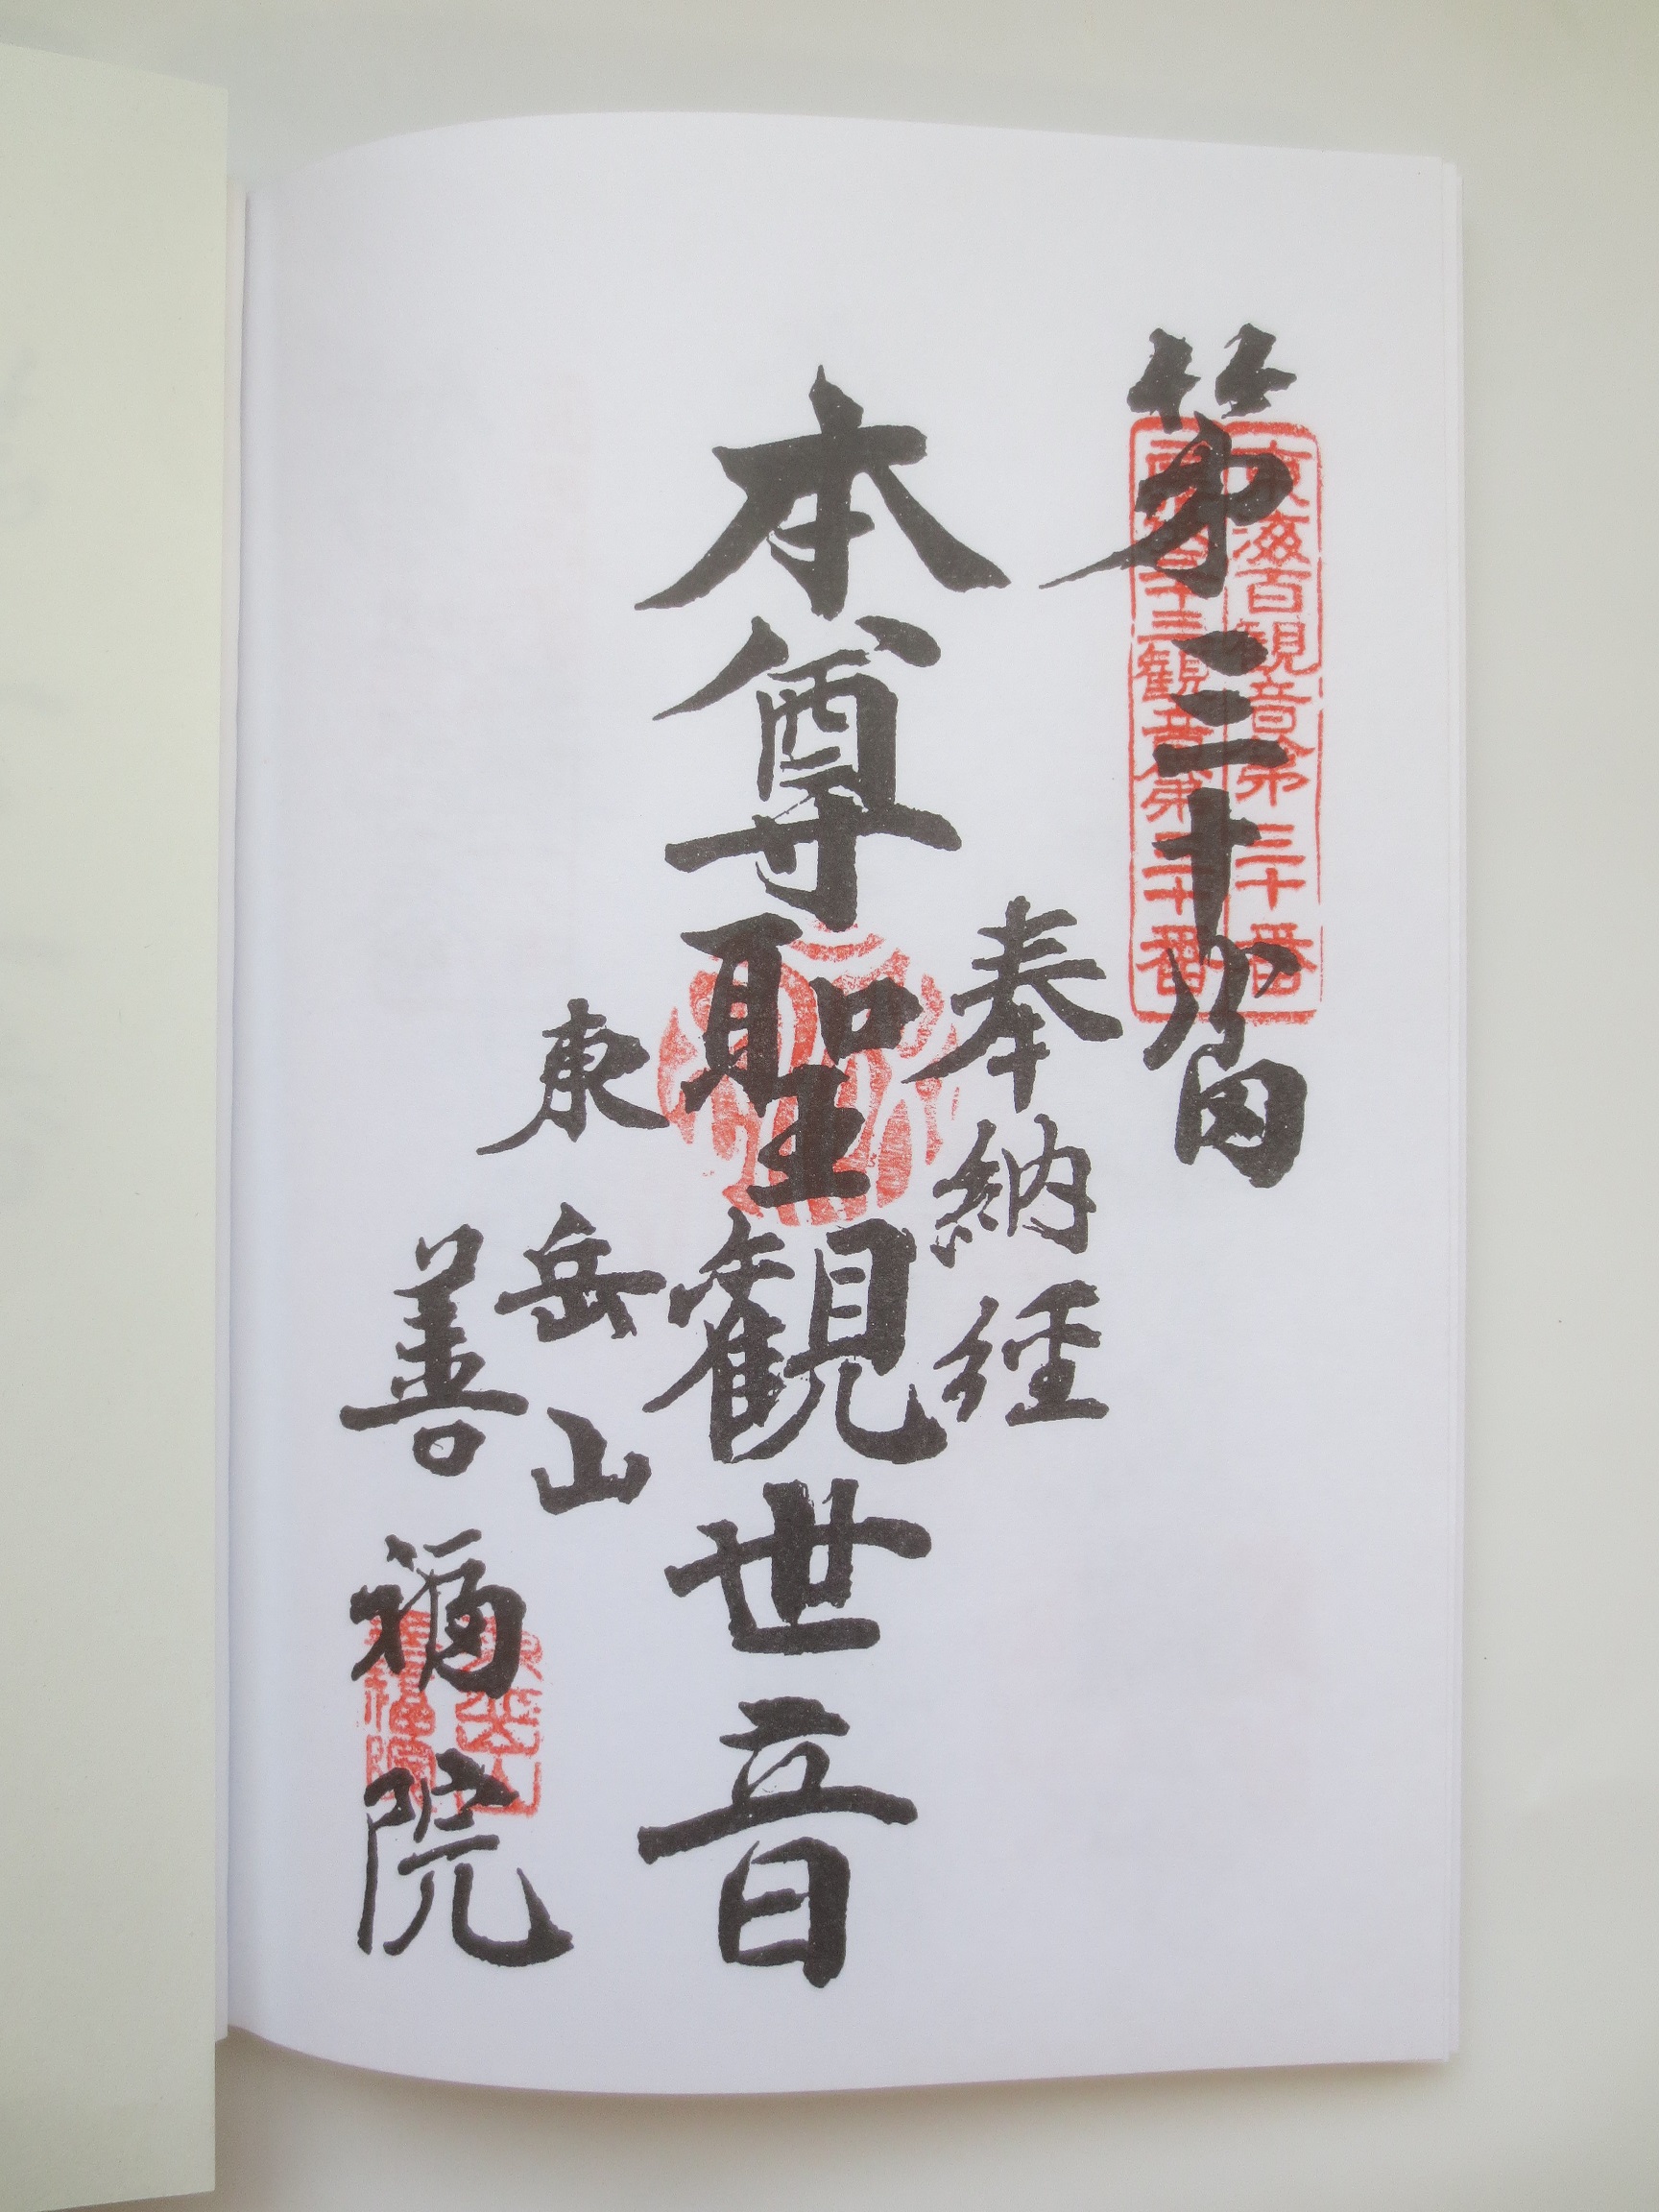 第三十番
東海百観音第三十番
三十三観音第三十番
奉納経
本尊聖観世音
東岳山
善福院
東岳山
善福院